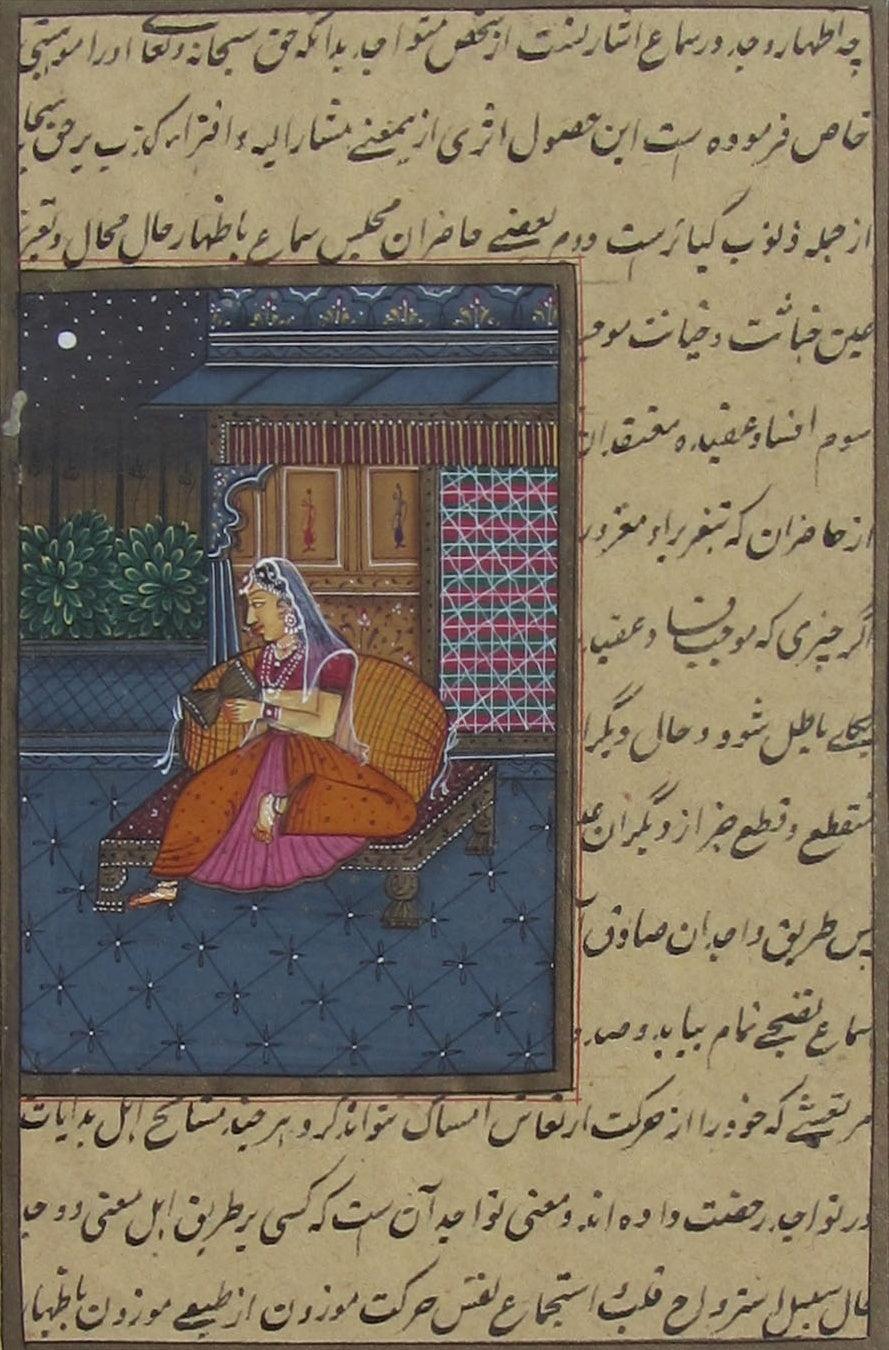 چه اظهار وجد در سماع اشارتست از شخص متواجد بدانکه حق سبحانه و تعالی اورا موهبتی
خاص فرموده است این حصول اثری از یمعنے مشار الیه و افتراء کذب بر حق
از جمله ذنوب کبائرست دوم بعضے حاضران مجلس سماع باظهار حال محال و
عین خباثت و خیانت
سوم افساد عقیده معتقدان
از حاضران که
اگر چیزی که موجب فساد عقیده
باطل شود و حال دیگرا
منقطع و قطع خبر از دیگران
پس طریق واجدان صادق
سماع تمام بیابد و
که خود را از حرکت ارتعاش امساک نتواند کرد و هر چند مشایخ اهل بدایات
در تواجد رخصت داده اند و معنی تواجد آن ست که کسی بر طریق اهل معنی و وجد
حال سبیل استرواح قلب و استجماع نفس حرکت موزون از طبیعے موزون باظهار